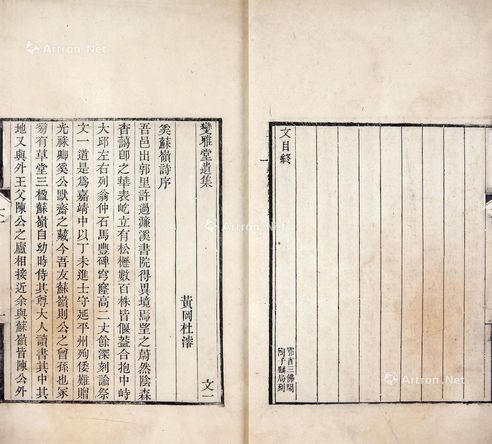 文目終
鄂省三佛閣
陶子麟局刻
變雅堂遺集
黃岡杜濬
奚蘇嶺詩序
吾邑出郭里許過濂溪書院得異境焉望之蔚然陰森
杳藹卽之華表屹立有松櫪數百株皆偃蓋合抱中峙
大邱左右列翁仲石馬豐碑穹窿高二丈餘深刻諭祭
文一道是爲嘉靖中以丁未進士守延平州殉倭難贈
光祿卿奚公獸齋之藏今吾友蘇嶺則公之曾孫也冢
旁有草堂三楹蘇嶺自幼時侍其尊大人讀書其中其
地又與外王父陳公之廬相接近余與蘇嶺皆陳公外
文一
Artron.Net